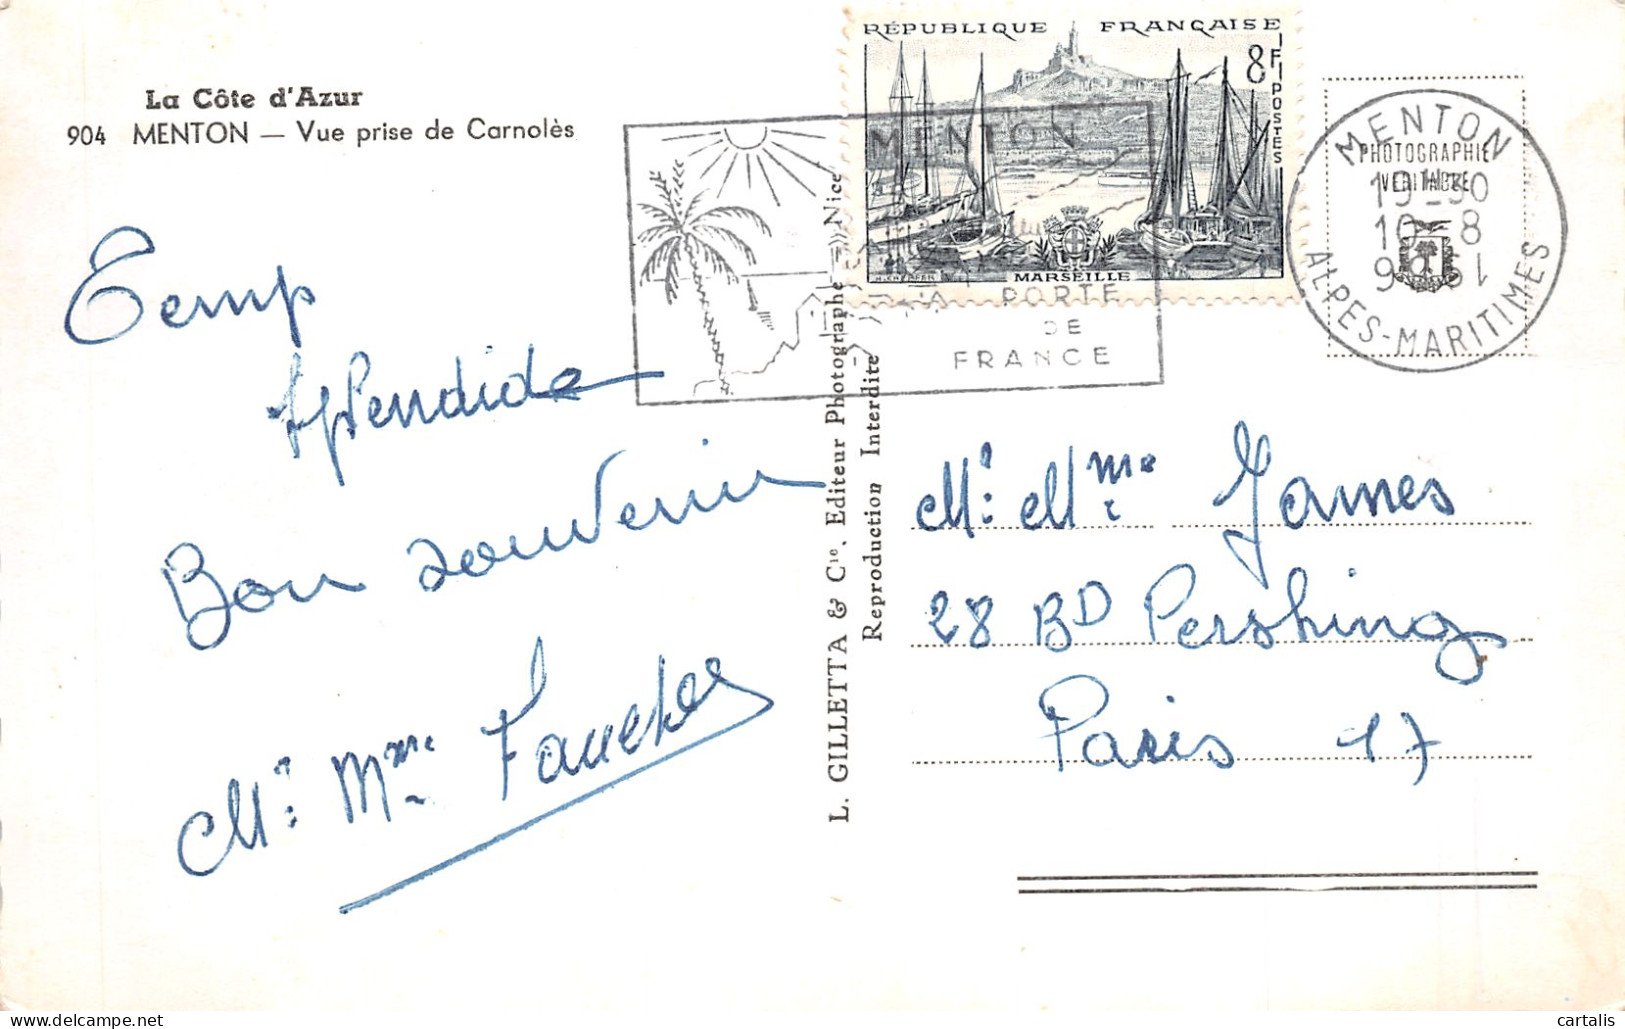 La Côte d'Azur
904 MENTON — Vue prise de Carnolès
Temp
splendide
Bon souvenir
Mr. Mme. Faucher
L. GILLETTA & Cie, Editeur Photographe - Nice
Reproduction Interdite
RÉPUBLIQUE FRANÇAISE
8F
POSTES
MARSEILLE
MENTON
PORTE
DE
FRANCE
MENTON
19-30
10-8
ALPES-MARITIMES
PHOTOGRAPHIE
VERITABLE
Mr. Mme. James
28 BD Pershing
Paris 17
cartalis